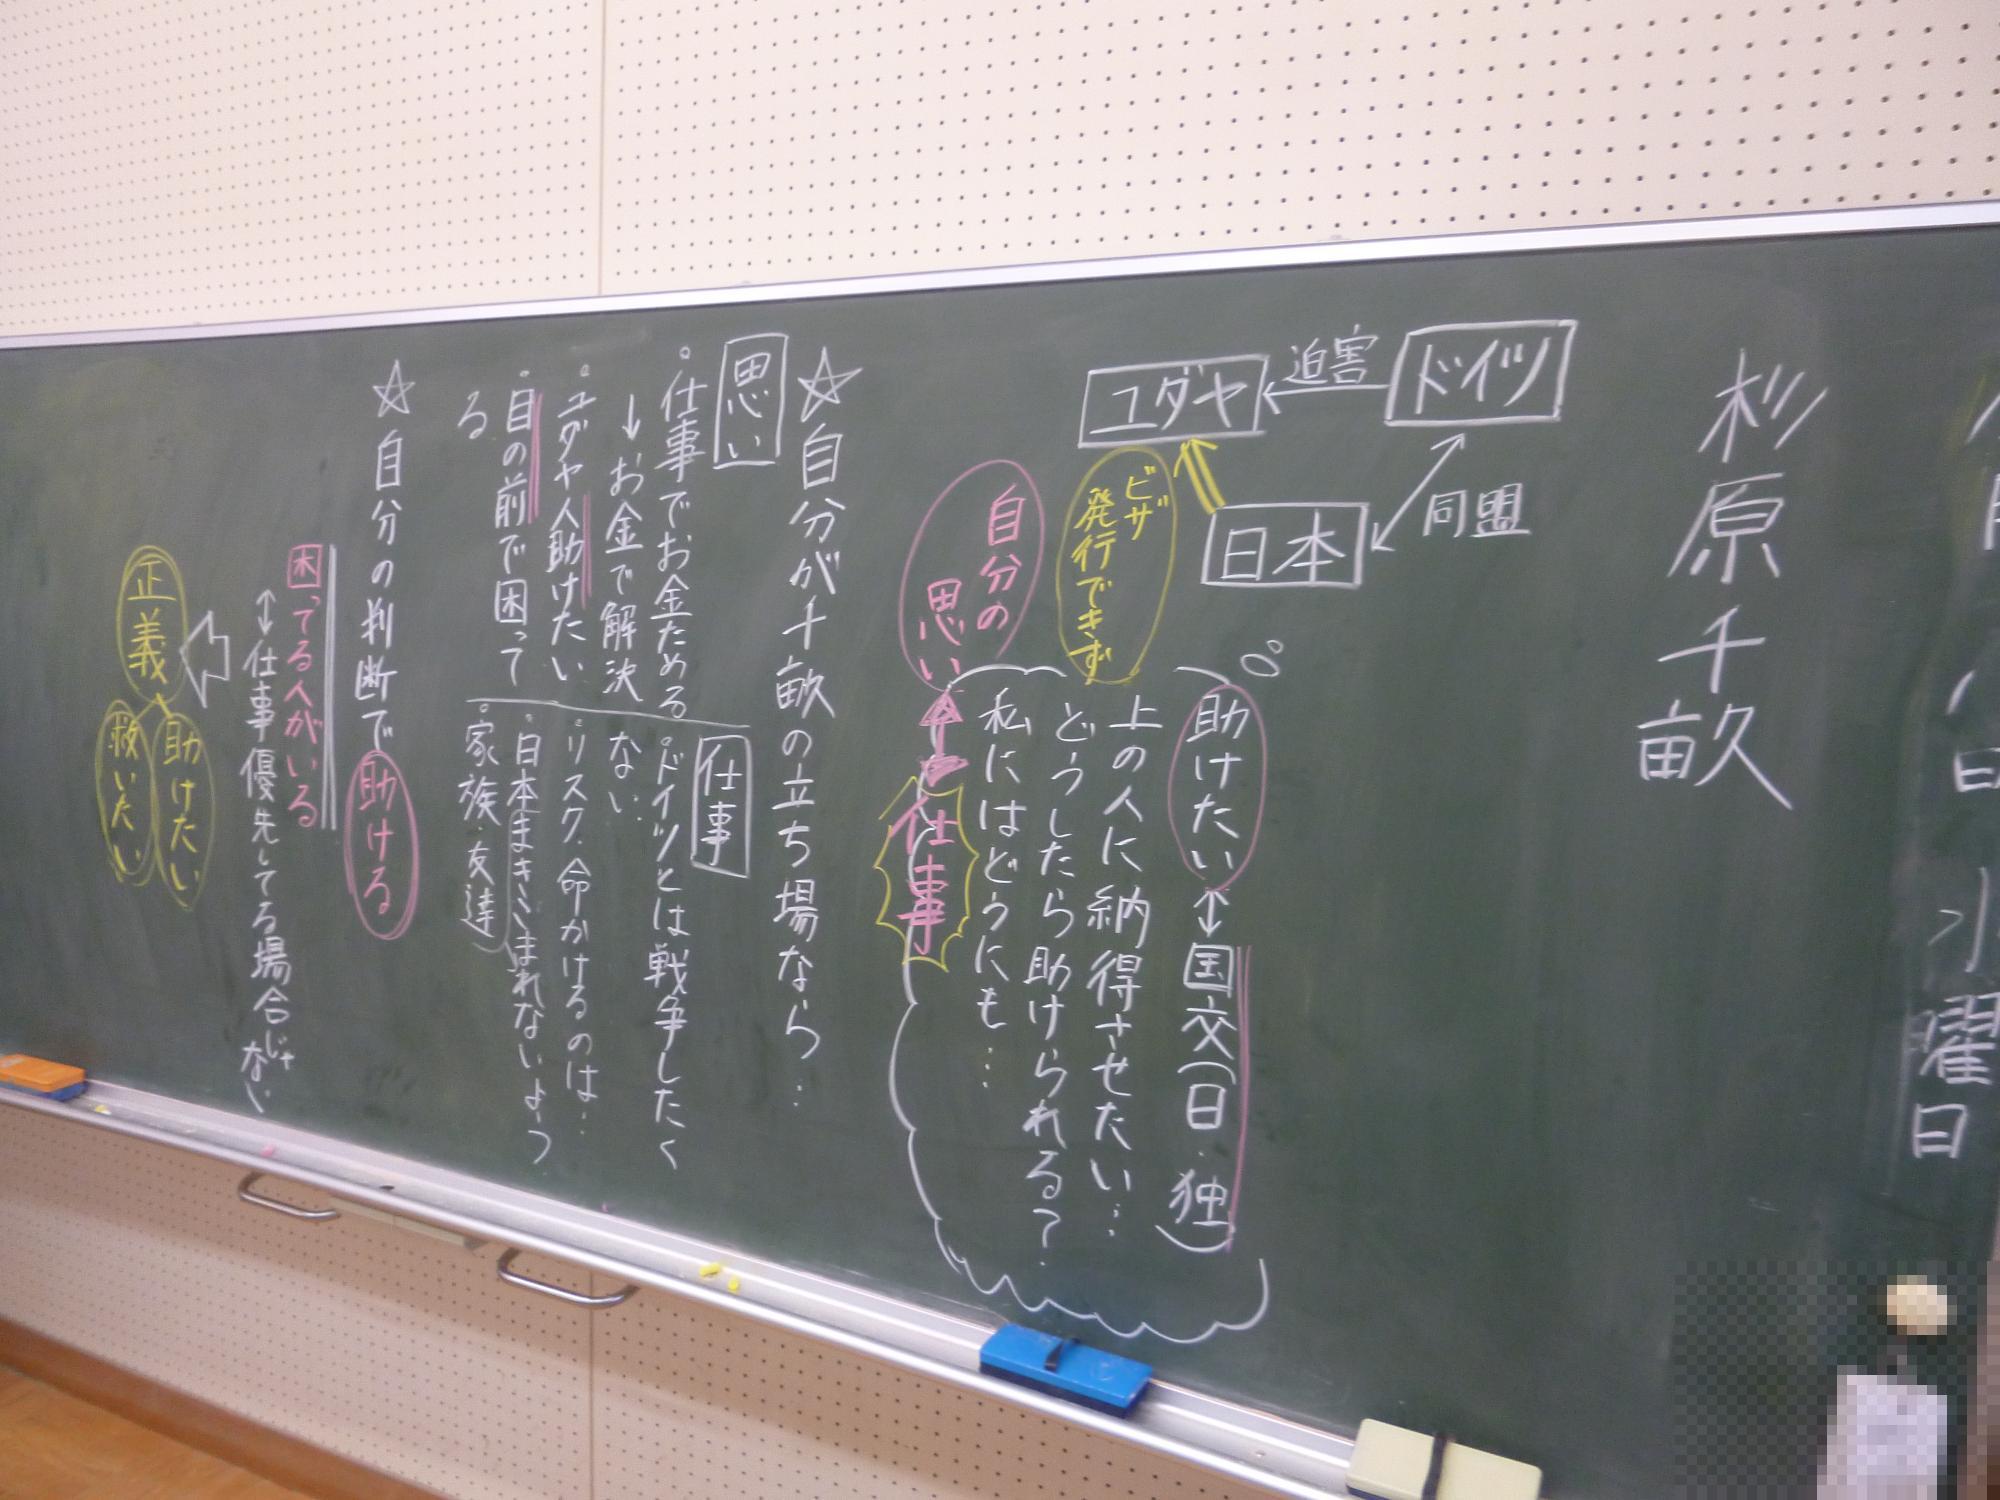 月 日 水曜日
杉原千畝
ドイツ
迫害
ユダヤ
同盟
日本
ビザ
発行できず
助けたい↔国交(日・独)
上の人に納得させたい…
どうしたら助けられる?
私にはどうにも…
自分の
思い
仕事
☆自分が千畝の立ち場なら…
思い
・仕事でお金ためる
↓お金で解決
・ユダヤ人助けたい
・目の前で困って
る
仕事
・ドイツとは戦争したく
ない
・リスク・命かけるのは…
・日本まきこまれないよう
・家族・友達
☆自分の判断で助ける
困ってる人がいる
↔仕事優先してる場合じゃない
正義
助けたい
救いたい